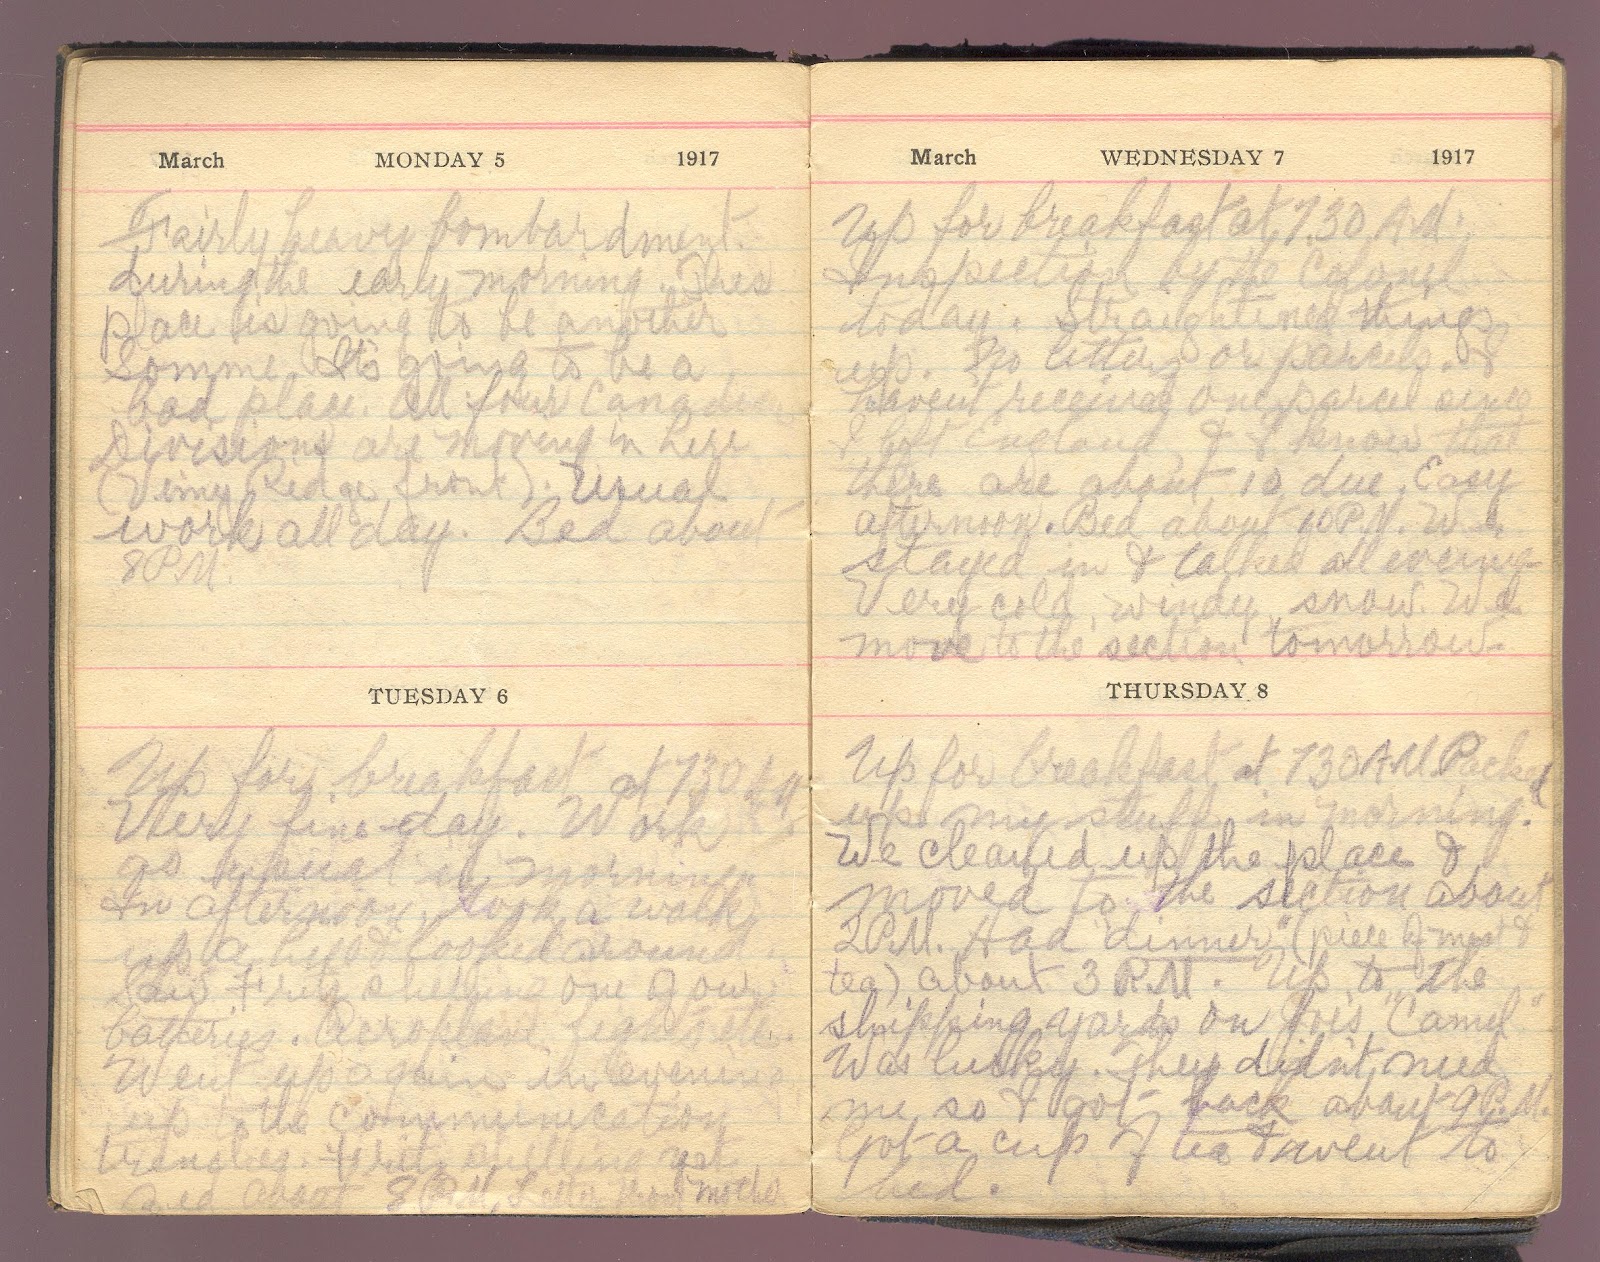 March MONDAY 5 1917
Fairly heavy bombardment
during the early morning. This
place is going to be another
Somme. It's going to be a
bad place. All four Canadian
Divisions are moving in here
(Vimy Ridge front). Usual
work all day. Bed about
8 P.M.
TUESDAY 6
Up for breakfast at 730 A.M
Very fine day. Work
as usual in morning
In afternoon took a walk
up a hill & looked around.
Saw Fritz shelling one of our
batteries. Aeroplane fights etc.
Went up again in evening
up to the communication
trenches. Fritz shelling yet
Bed about 8 P.M. Letter from mother
March WEDNESDAY 7 1917
Up for breakfast at 7.30 A.M.
Inspection by the Colonel
today. Straightened things
up. No letters or parcels. I
havent received one parcel since
I left England & I know that
there are about 10 due. Easy
afternoon. Bed about 10 P.M. We
stayed in & talked all evening
Very cold, windy, snow. We
move to the section tomorrow.
THURSDAY 8
Up for breakfast at 730 A.M. Packed
up my stuff in morning.
We cleaned up the place &
moved to the section about
2 P.M. Had "dinner" (piece of meat &
tea) about 3 P.M. Up to the
shipping yards on "Camel"
Was lucky. They didn't need
me so I got back about 9 P.M.
Got a cup of tea & went to
bed.